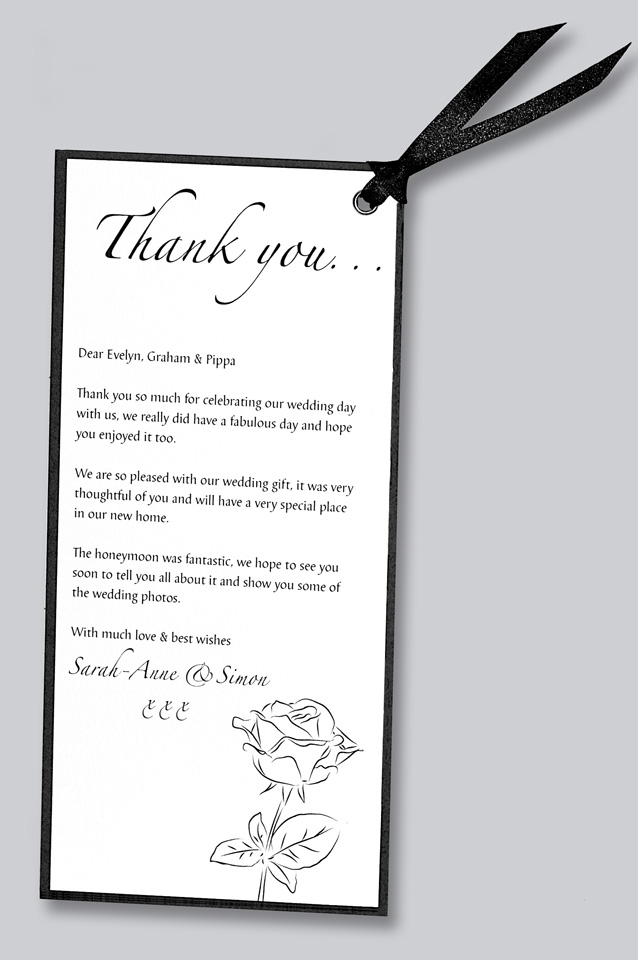 Thank you. . .
Dear Evelyn, Graham & Pippa
Thank you so much for celebrating our wedding day
with us, we really did have a fabulous day and hope
you enjoyed it too.
We are so pleased with our wedding gift, it was very
thoughtful of you and will have a very special place
in our new home.
The honeymoon was fantastic, we hope to see you
soon to tell you all about it and show you some of
the wedding photos.
With much love & best wishes
Sarah-Anne & Simon
x x x